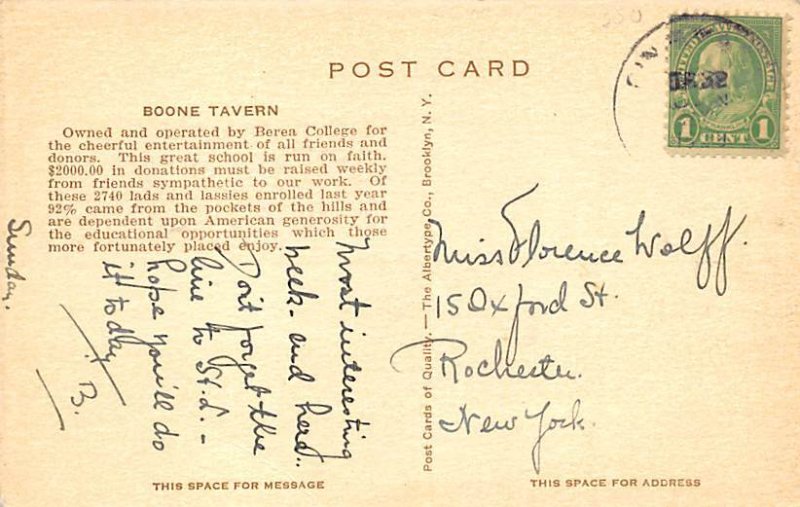 POST CARD
BOONE TAVERN
Owned and operated by Berea College for
the cheerful entertainment of all friends and
donors. This great school is run on faith.
$2000.00 in donations must be raised weekly
from friends sympathetic to our work. Of
these 2740 lads and lassies enrolled last year
92% came from the pockets of the hills and
are dependent upon American generosity for
the educational opportunities which those
more fortunately placed enjoy.
Sunday.
Most interesting
week-end here..
Don't forget the
line to St. L. -
hope you'll do
it today!
B.
Post Cards of Quality.—The Albertype Co., Brooklyn, N. Y.
Miss Florence Wolff.
15 Oxford St.
Rochester.
New York.
1 CENT 1
THIS SPACE FOR MESSAGE
THIS SPACE FOR ADDRESS